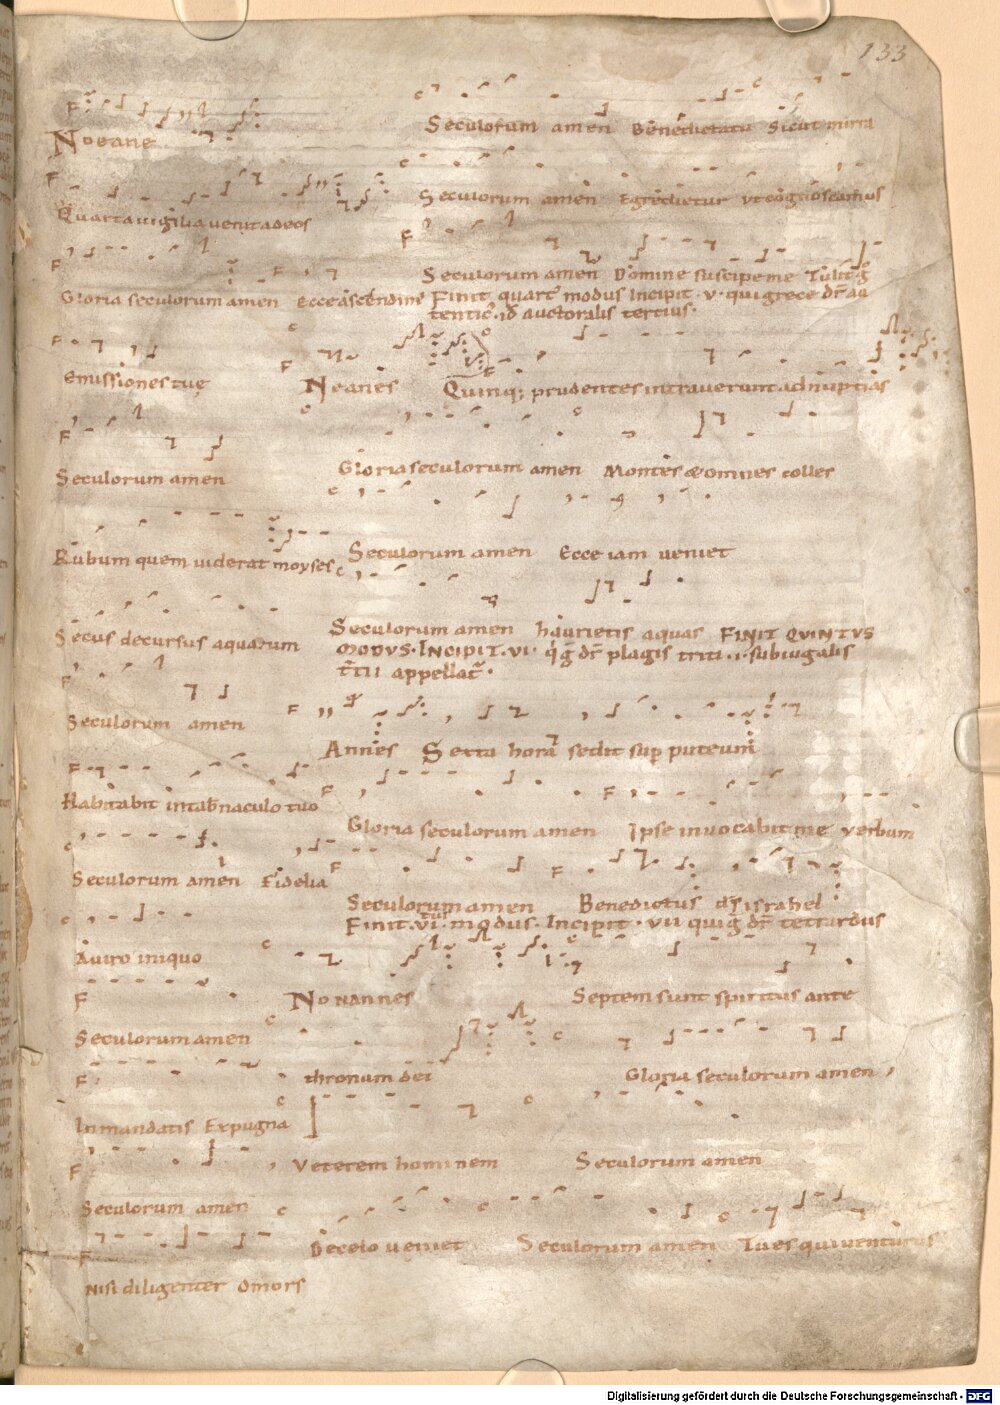 133
Noeane
Seculorum amen Benedictatu Sicut mirra
Quarta vigilia venit ad eos
Seculorum amen Egredietur ut cognoscamus
Gloria seculorum amen Ecce ascendim
Seculorum amen Domine suscipe me Tulit g̅
Finit quart᷒ modus Incipit · v · qui grece dr̅ au
tentic᷒ · id auctoralis tertius ·
emissiones tuę
Noeanes
Quinq; prudentes intraverunt ad nuptias
Seculorum amen
Gloria seculorum amen Montes & omnes colles
Rubum quem viderat moyses
Seculorum amen Ecce iam veniet
Secus decursus aquarum
Seculorum amen haurietis aquas FINIT QUINTVS
MODVS · INCIPIT · VI · q̇ g̅ dr̅ plagis triti · i · subiugalis
t̅tii appellat᷒ ·
Seculorum amen
Annes Sexta hora sedit sup puteum
Habitabit in tab̅naculo tuo
Gloria seculorum amen Ipse invocabit me verbum
Seculorum amen Fidelia
Seculorum amen Benedictus d̅s israhel
Finit · vi · tus modus · Incipit · vii qui g̅ dr̅ tetrardus
A viro iniquo
Nonannes
Septem sunt spiritus ante
Seculorum amen
thronum dei
Gloria seculorum amen
In mandatis Expugna
Veterem hominem
Seculorum amen
Seculorum amen
De celo veniet
Seculorum amen Tu es qui venturus
Nisi diligenter O mors
Digitalisierung gefördert durch die Deutsche Forschungsgemeinschaft - DFG